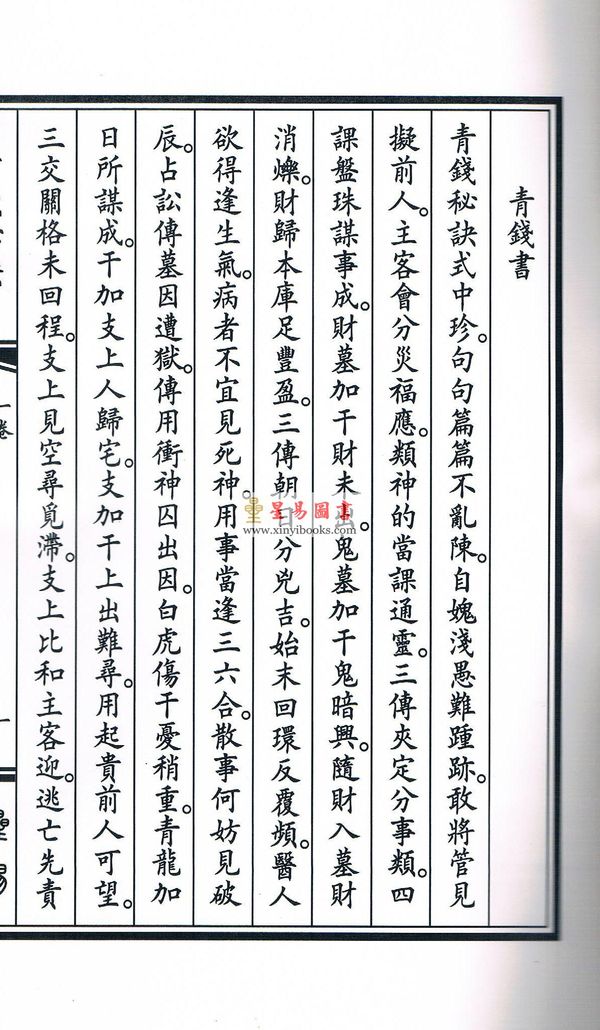 青錢書
青錢秘訣式中珍。句句篇篇不亂陳。自媿淺愚難踵跡。敢將管見
擬前人。主客會分災福應。類神的當課通靈。三傳夾定分事類。四
課盤珠謀事成。財墓加干財未出。鬼墓加干鬼暗興。隨財入墓財
消爍。財歸本庫足豐盈。三傳朝日分兇吉。始末回環反覆頻。醫人
欲得逢生氣。病者不宜見死神。用事當逢三六合。散事何妨見破
辰。占訟傳墓因遭獄。傳用衝神囚出因。白虎傷干憂稍重。青龍加
日所謀成。干加支上人歸宅。支加干上出難尋。用起貴前人可望。
三交關格未回程。支上見空尋覓滯。支上比和主客迎。逃亡先責
星易圖書
www.xinyibooks.com
一卷
一
星易